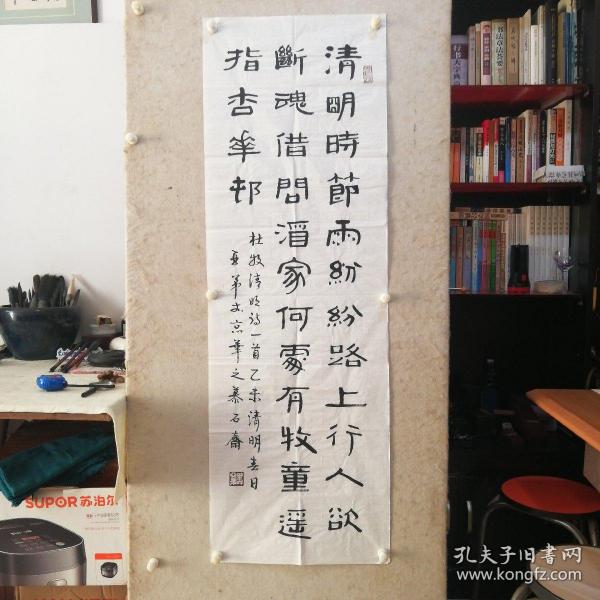 清明時節雨紛紛路上行人欲
斷魂借問酒家何處有牧童遥
指杏華邨
杜牧清明诗一首乙未清明春日
京華之慕石齋
SUPOR 苏泊尔
书法章法答要
孔夫子旧书网
www.kongfz.com